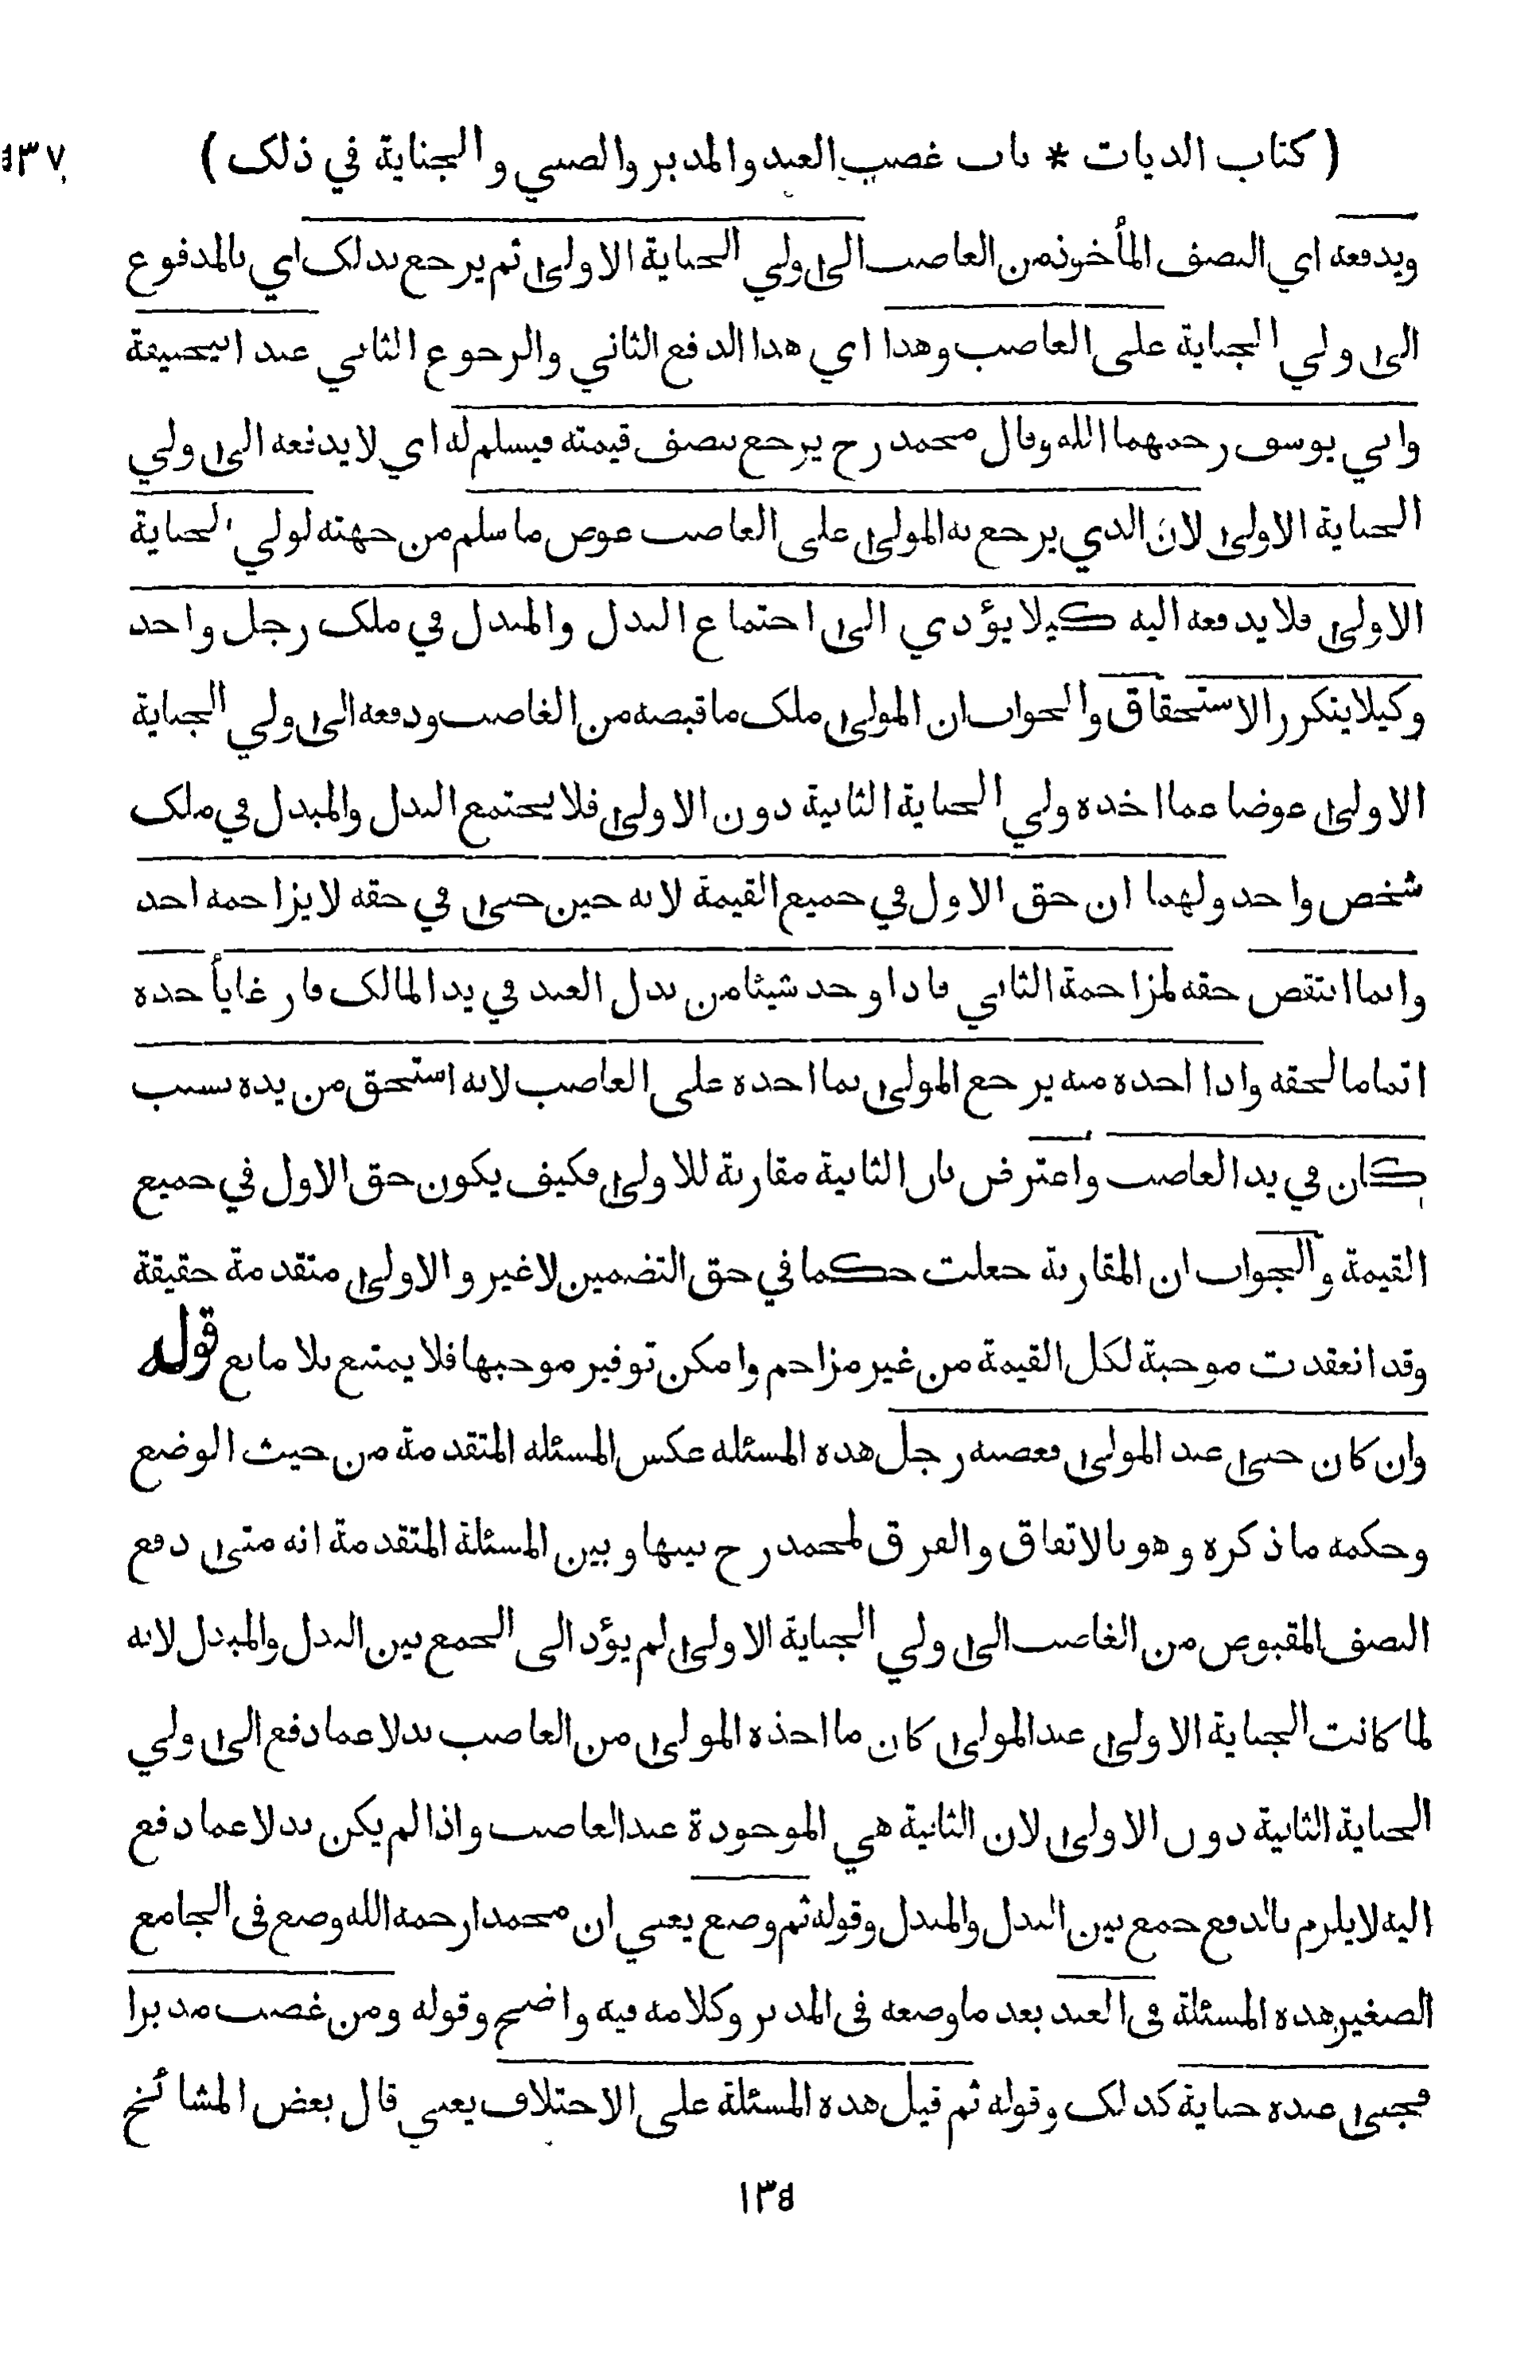 ( كتاب الديات * باب غصب العبد والمدبر والصبي والجناية في ذلك )
ويدفعه اي النصف المأخوذ من الغاصب الى ولي الجناية الاولى ثم يرجع بذلك اي بالمدفوع
الى ولي الجناية على الغاصب وهذا اي هذا الدفع الثاني والرجوع الثاني عند ابيحنيفة
وابي يوسف رحمهما الله وقال محمد رح يرجع بنصف قيمته فيسلم له اي لا يدفعه الى ولي
الجناية الاولى لان الذي يرجع به المولى على الغاصب عوض ما سلم من جهته لولي الجناية
الاولى فلا يدفعه اليه كيلا يؤدي الى اجتماع البدل والمبدل في ملك رجل واحد
وكيلا يتكرر الاستحقاق والجواب ان المولى ملك ما قبضه من الغاصب ودفعه الى ولي الجناية
الاولى عوضا عما اخذه ولي الجناية الثانية دون الاولى فلا يجتمع البدل والمبدل في ملك
شخص واحد ولهما ان حق الاول في جميع القيمة لانه حين جنى في حقه لا يزاحمه احد
وانما انتقص حقه لمزاحمة الثاني فاذا وجد شيئا من بدل العبد في يد المالك فارغا يأخذه
اتماما لحقه واذا اخذه منه يرجع المولى بما اخذه على الغاصب لانه استحق من يده بسبب
كان في يد الغاصب واعترض بان الثانية مقارنة للاولى فكيف يكون حق الاول في جميع
القيمة والجواب ان المقارنة جعلت حكما في حق التضمين لا غير والاولى متقدمة حقيقة
وقد انعقدت موجبة لكل القيمة من غير مزاحم وامكن توفير موجبها فلا يمتنع بلا مانع قوله
وان كان جنى عند المولى فغصبه رجل هذه المسئله عكس المسئله المتقدمة من حيث الوضع
وحكمه ما ذكره وهو بالاتفاق والفرق لمحمد رح بينها وبين المسئلة المتقدمة انه متى دفع
النصف المقبوض من الغاصب الى ولي الجناية الاولى لم يؤد الى الجمع بين البدل والمبدل لانه
لما كانت الجناية الاولى عند المولى كان ما اخذه المولى من الغاصب بدلا عما دفع الى ولي
الجناية الثانية دون الاولى لان الثانية هي الموجودة عند الغاصب واذا لم يكن بدلا عما دفع
اليه لا يلزم بالدفع جمع بين البدل والمبدل وقوله ثم وضع يعني ان محمدا رحمه الله وضع في الجامع
الصغير هذه المسئلة في العبد بعد ما وضعه في المدبر وكلامه فيه واضح وقوله ومن غصب مدبرا
فجنى عنده جناية كذلك وقوله ثم قيل هذه المسئلة على الاختلاف يعني قال بعض المشائخ